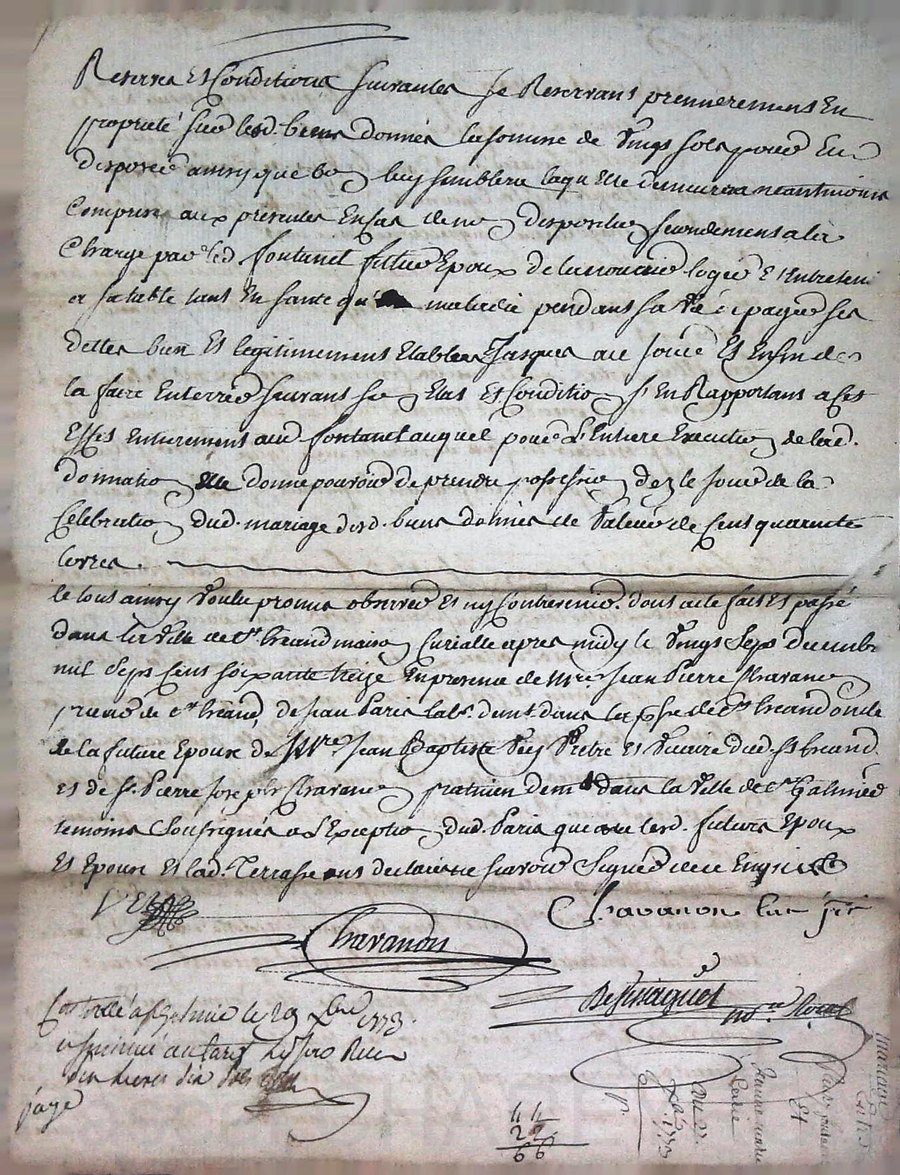 Reserves Et Conditions suivantes se Reservant premierement En
proprieté sur lesd. biens donnés la somme de vingt sols pour En
disposer ainsy que bon luy semblera laquelle demeurera neantmoins
Comprise aux presentes En Cas de non disposition secondement a la
Charge par led. fontanel futur Epoux de la nourrir loger Et Entretenir
a sa table tant En santé qu'En maladie pendant sa vie payer ses
dettes bien Et legitimement Etablies Jusques a ce jour Et Enfin de
la faire Enterrer suivant son Etat Et Condition s'En Rapportant a cet
Effet Entierement aud. fontanel auquel pour L'Entiere Execution de lad.
donnation Elle donne pouvoir de prendre possession dez le jour de la
Celebration dud. mariage desd. biens donnés de valeur de Cent quarante
livres.
le tout ainsy voulu promis observer Et ny Contrevenir. dont acte fait Et passé
dans la ville de St. heand maison Curialle apres midy le vingt Sept decembre
mil Sept Cent soixante treize En presence de Mre. Jean Pierre Chavanon
Curé de St. heand, de Jean Paris lab. demt. dans la psse de St. heand oncle
de la future Epouse de Mre Jean Baptiste Vey Prêtre Et Vicaire dud. St heand
Et de Sr. Pierre Joseph Chavanon praticien demt. dans la Ville de St. Galmier
temoins Soussignés a L'Exception dud. Paris que avec lesd. futurs Epoux
Et Epouse Et lad. Terrasse ont declaré ne sçavoir Signer de ce Enquis
VEY
Chavanon Curé
Chavanon
notre Royal
Controllé a St Galmier le 29 Xbre 1773.
dix livres dix sols
payé
44
22
66
mariage